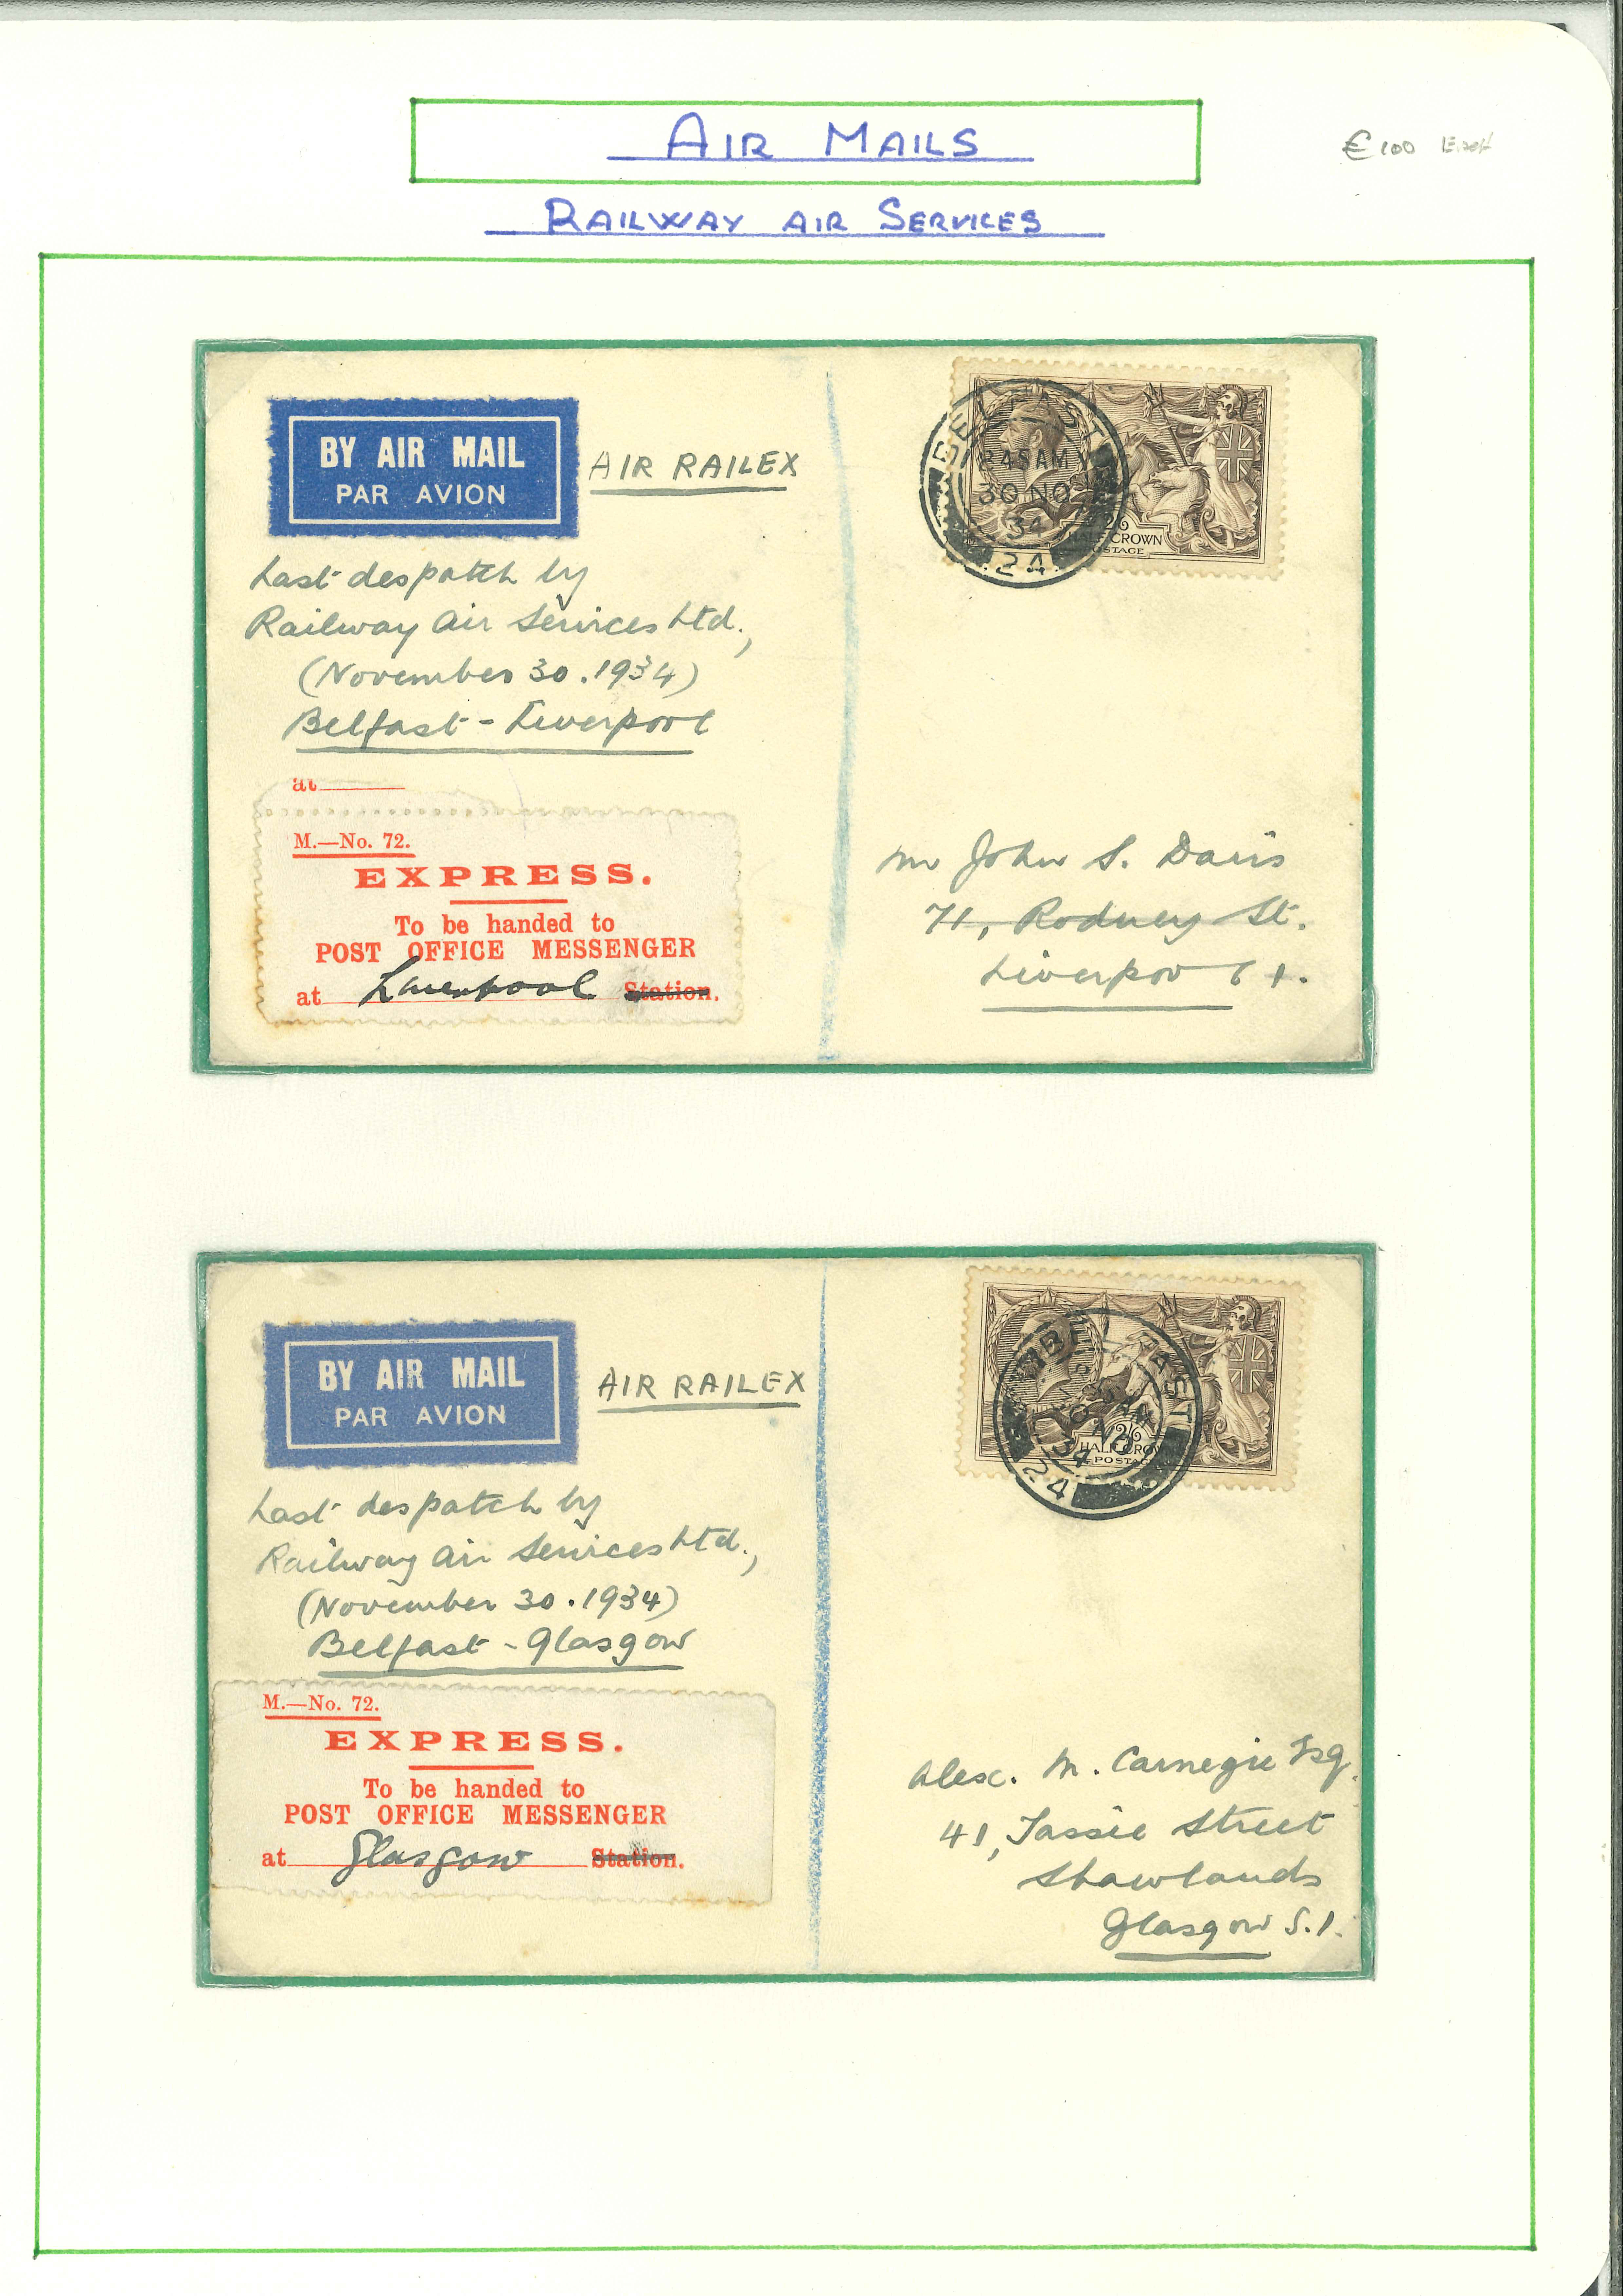 AIR MAILS
€100 EACH
RAILWAY AIR SERVICES
BY AIR MAIL
PAR AVION
AIR RAILEX
BELFAST
845AM
30 NO
34
24
2/6
HALF CROWN
POSTAGE
Last despatch by
Railway Air Services Ltd.,
(November 30. 1934)
Belfast - Liverpool
at
M.—No. 72.
EXPRESS.
To be handed to
POST OFFICE MESSENGER
at Liverpool Station.
Mr John S. Davis
71, Rodney St.
Liverpool 1.
BY AIR MAIL
PAR AVION
AIR RAILEX
BELFAST
AM
30 NO
34
24
2/6
HALF CROWN
POSTAGE
Last despatch by
Railway Air Services Ltd.,
(November 30. 1934)
Belfast - Glasgow
M.—No. 72.
EXPRESS.
To be handed to
POST OFFICE MESSENGER
at Glasgow Station.
Alex. M. Carnegie Esq.
41, Tassie Street
Shawlands
Glasgow S.1.